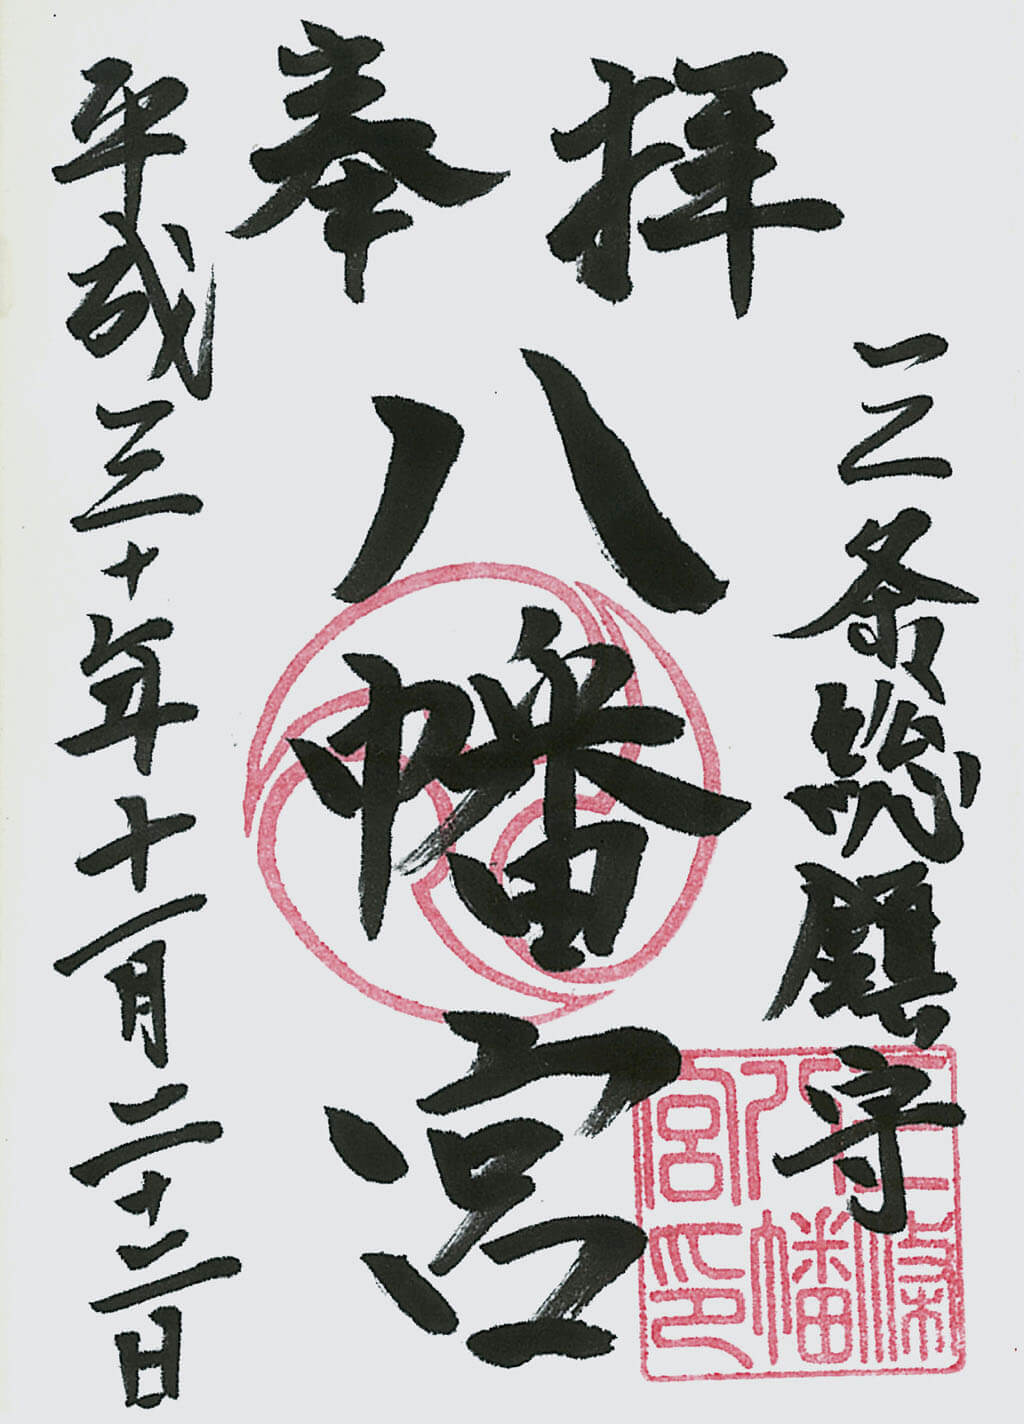 奉拝
三条総鎮守
八幡宮
平成三十年十一月二十二日
三條八幡宮印